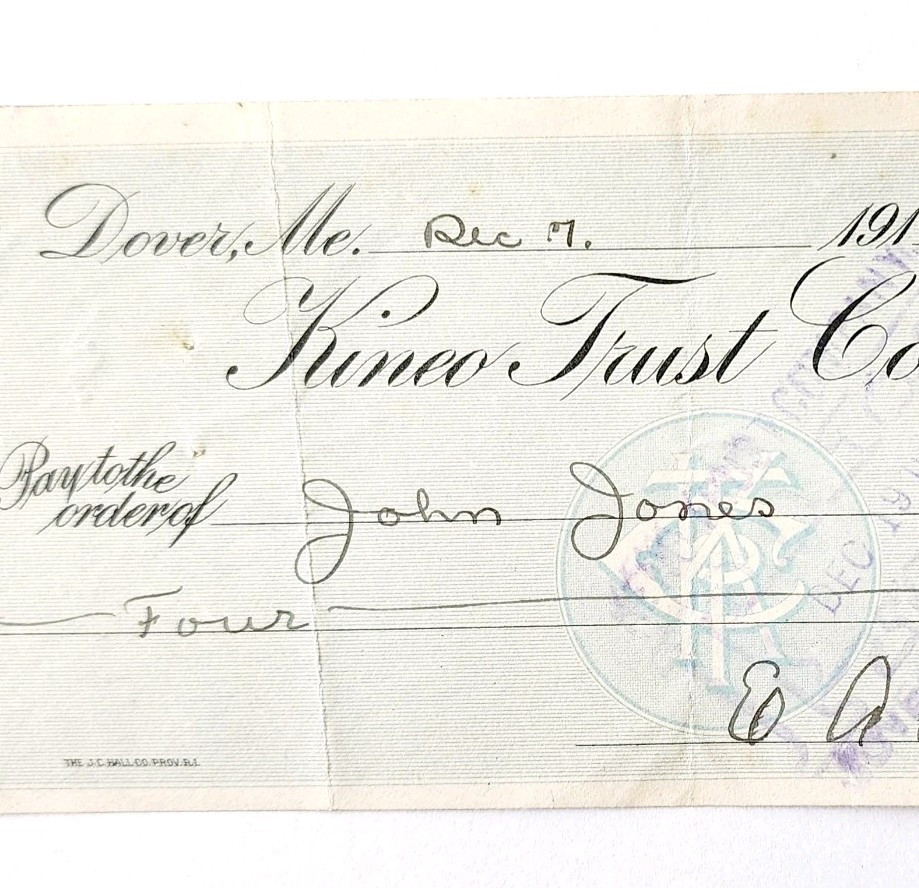 Dover, Me. Dec 7. 191
Kineo Trust Co
Pay to the
order of John Jones
Four
E A
THE J.C. HALL CO. PROV. R.I.
DEC 191